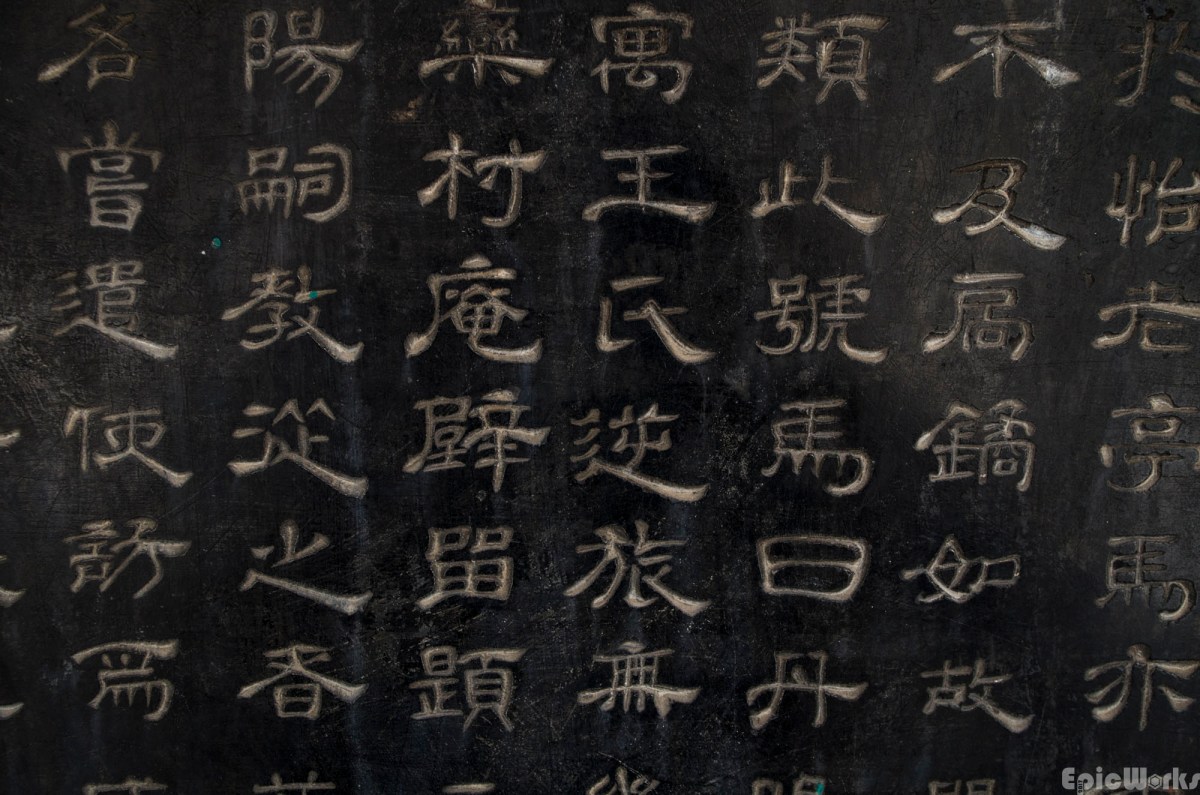 怡老亭馬亦
不及扃鐍如故
類此號馬曰丹
寓王氏逆旅無
欒村庵壁留題
陽嗣教從之者
各嘗遣使訪為
EpicWorks